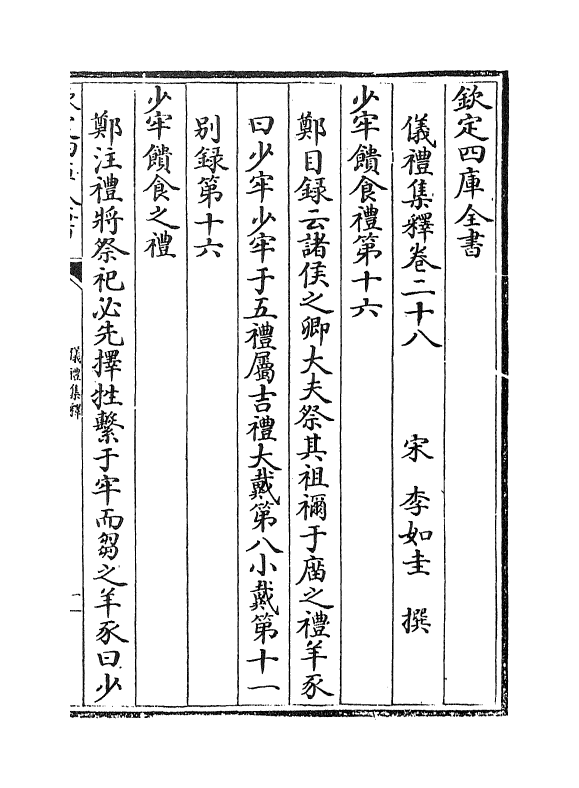 欽定四庫全書
儀禮集釋卷二十八 宋 李如圭 撰
少牢饋食禮第十六
鄭目録云諸侯之卿大夫祭其祖禰于廟之禮羊豕
曰少牢少牢于五禮屬吉禮大戴第八小戴第十一
别録第十六
少牢饋食之禮
鄭注禮將祭祀必先擇牲繫于牢而芻之羊豕曰少
儀禮集釋